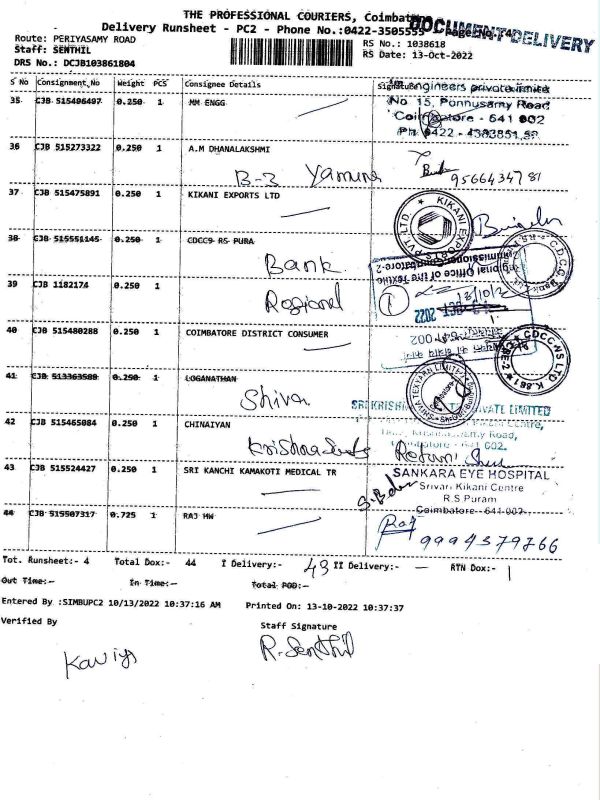 THE PROFESSIONAL COURIERS,
DOCUMENT DELIVERY
Delivery Runsheet - PC2 - Phone No.:0422-3505555
Route: PERIYASAMY ROAD
RS No.: 1038618
Staff: SENTHIL
RS Date: 13-Oct-2022
DRS No.: DCJB103861804
S No Consignment_No Weight PCS Consignee Details Signature
engineers private limited
No 15, Ponnusamy Road
Coimbatore - 641 002
35 CJB 515496497 0.250 1 MM ENGG
36 CJB 515273322 0.250 1 A.M DHANALAKSHMI
B-3 Yamuna
9566434781
37 CJB 515475891 0.250 1 KIKANI EXPORTS LTD
KIKANI EXPORTS PVT LTD.
38 CJB 515551145 0.250 1 CDCC9 RS PURA
Bank
Regional Office of the Textile
Commissioner, Coimbatore-2
39 CJB 1182174 0.250 1
Regional
2022
40 CJB 515480288 0.250 1 COIMBATORE DISTRICT CONSUMER
41 CJB 513363588 0.250 1 LOGANATHAN
Shiva
SHIVA TEXYARN LIMITED
42 CJB 515465084 0.250 1 CHINAIYAN
Return
43 CJB 515524427 0.250 1 SRI KANCHI KAMAKOTI MEDICAL TR
SANKARA EYE HOSPITAL
Srivari Kikani Centre
R.S Puram
Coimbatore - 641 002.
44 CJB 515507317 0.725 1 RAJ MW
Raj
9994379766
Tot. Runsheet:- 4 Total Dox:- 44 I Delivery:- 43 II Delivery:- — RTN Dox:- 1
Out Time:- In Time:- Total POD:-
Entered By :SIMBUPC2 10/13/2022 10:37:16 AM Printed On: 13-10-2022 10:37:37
Verified By Staff Signature
Kaviya R. Senthil